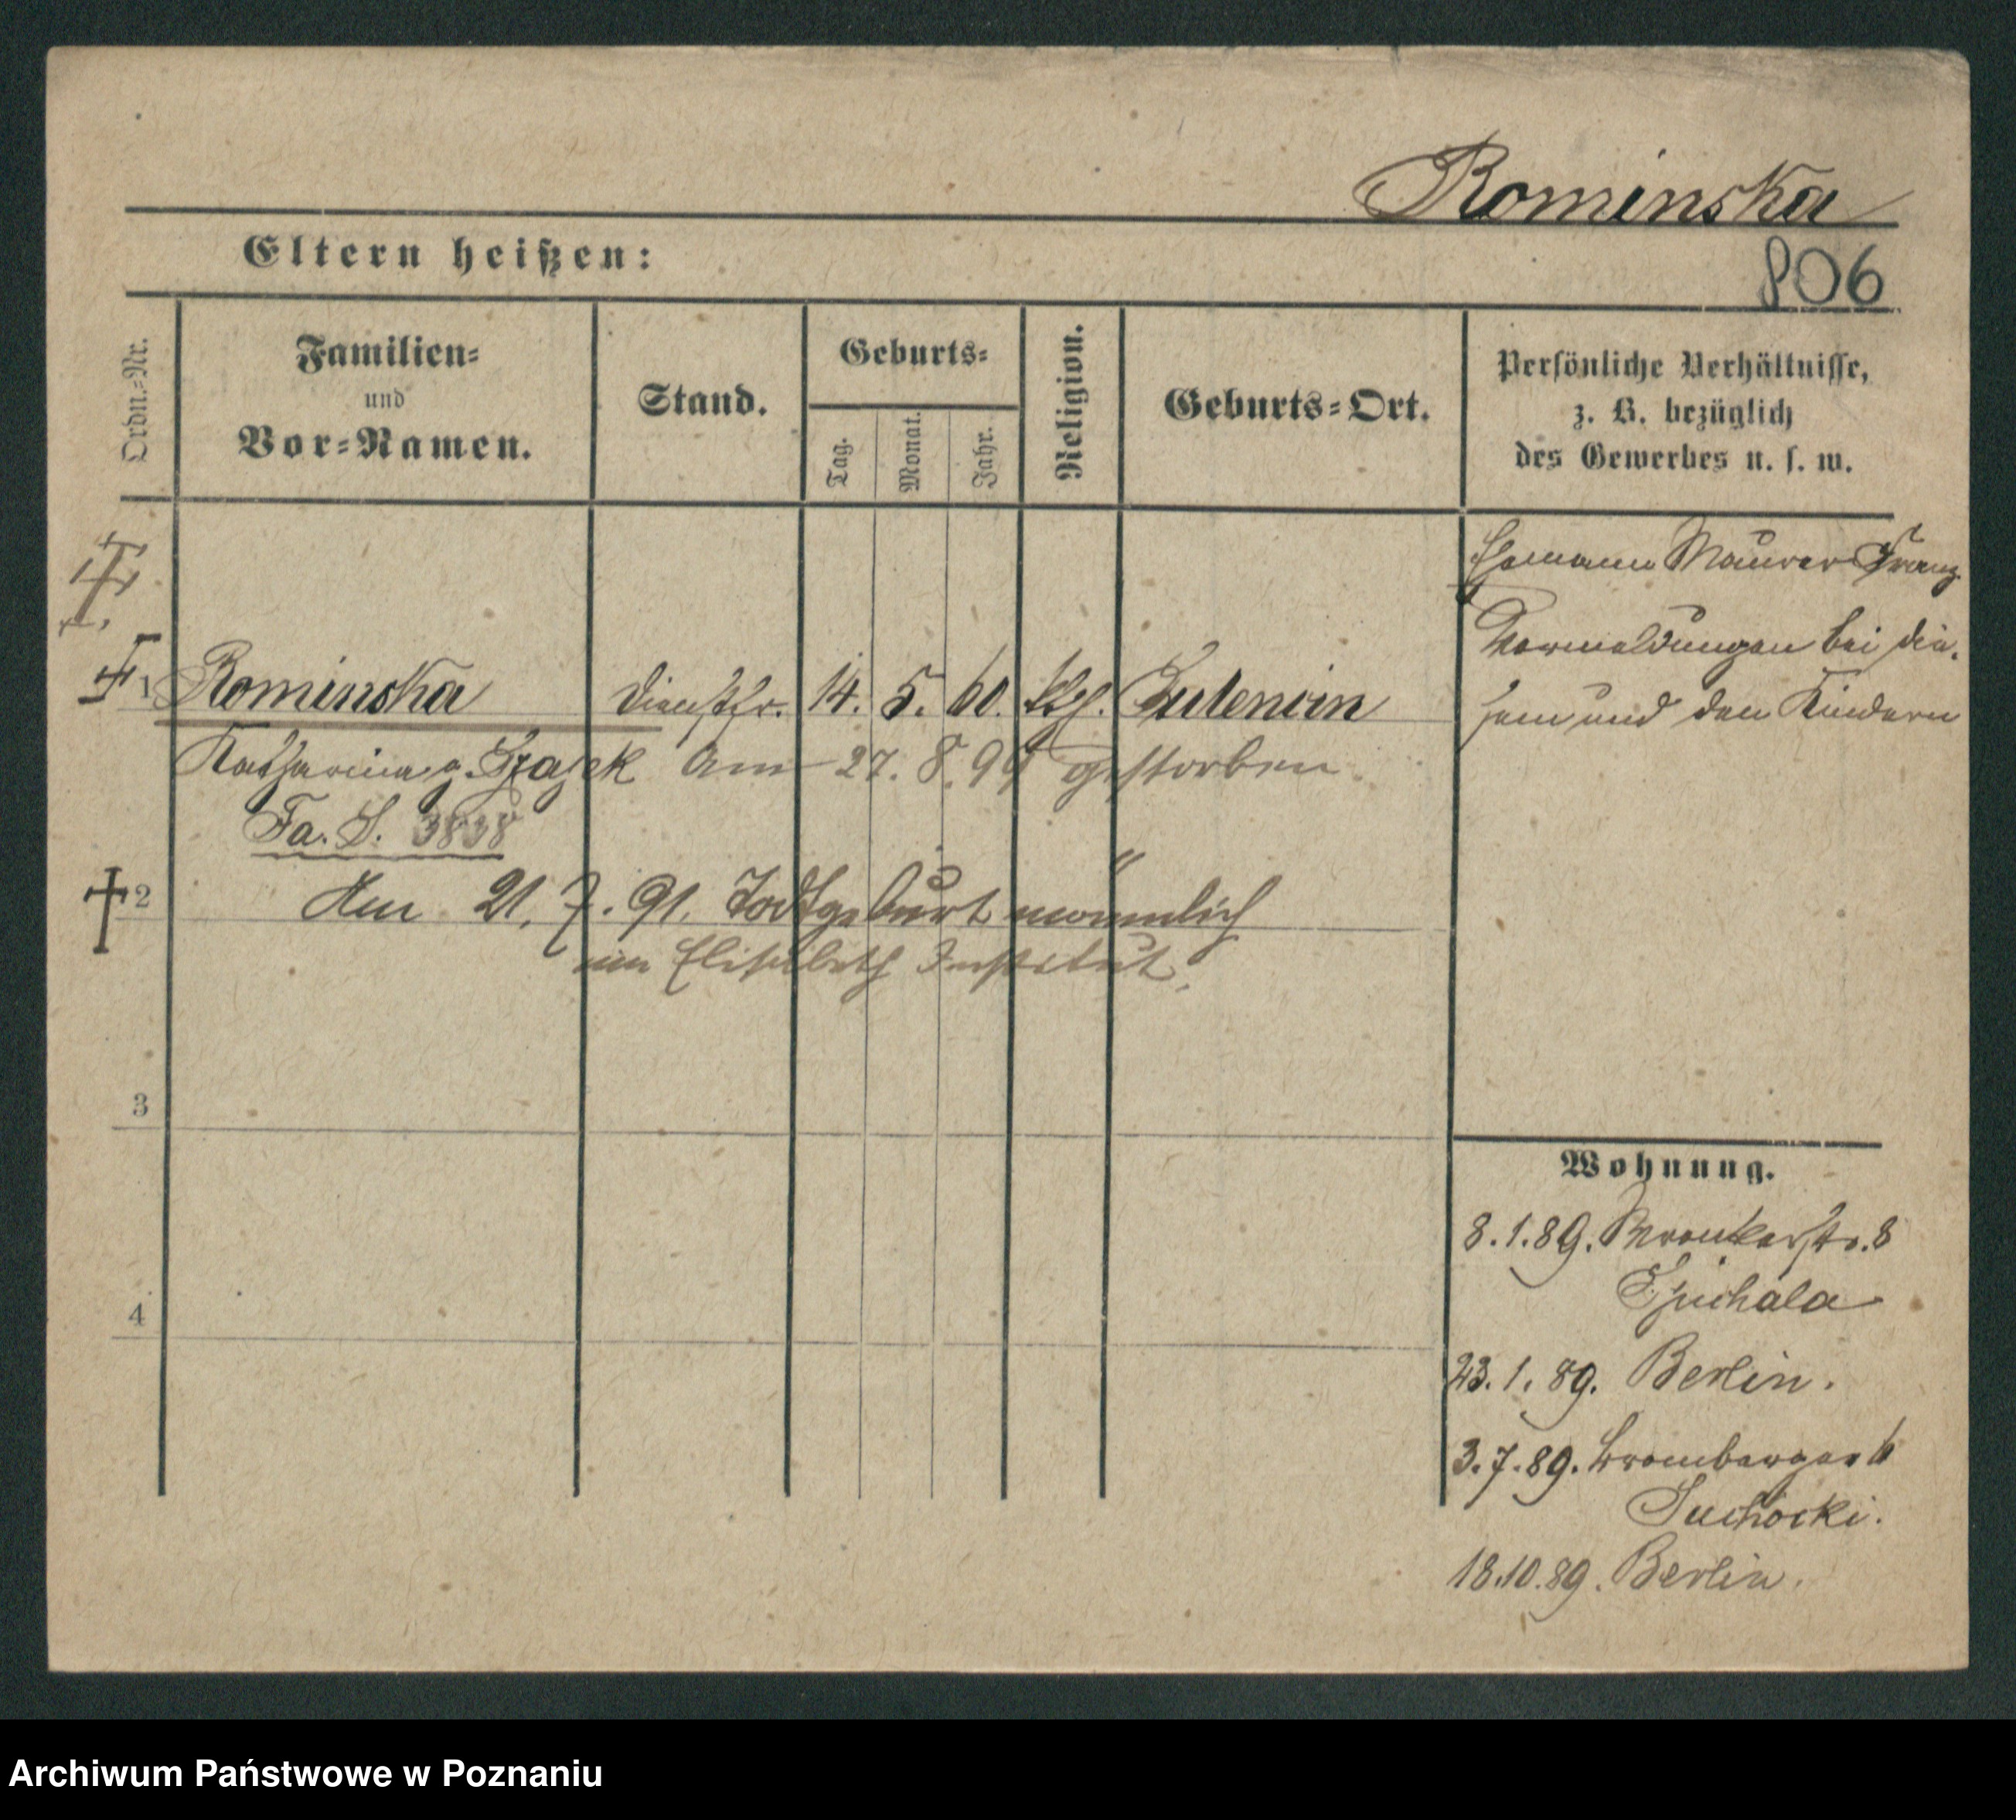 Rominska
Eltern heißen:
806
Ordn.=Nr.
Familien=
und
Vor=Namen.
Stand.
Geburts=
Tag.
Monat.
Jahr.
Religion.
Geburts=Ort.
Persönliche Verhältnisse,
z. B. bezüglich
des Gewerbes u. s. w.
Ehemann Maurer Franz
Vermeldungen bei die-
sem und den Kindern
1 Rominska 14. 5. 60. kth.
Katharina g. Am 27. 8. 99 gestorben.
Fa. S. 3838
2 Am 21. 7. 91. Todtgeburt männlich
im Elisabeth Institut.
3
4
Wohnung.
8. 1. 89. Wronkerstr. 8
23. 1. 89. Berlin.
3. 7. 89. Bromberger
Suchocki.
18. 10. 89. Berlin.
Archiwum Państwowe w Poznaniu